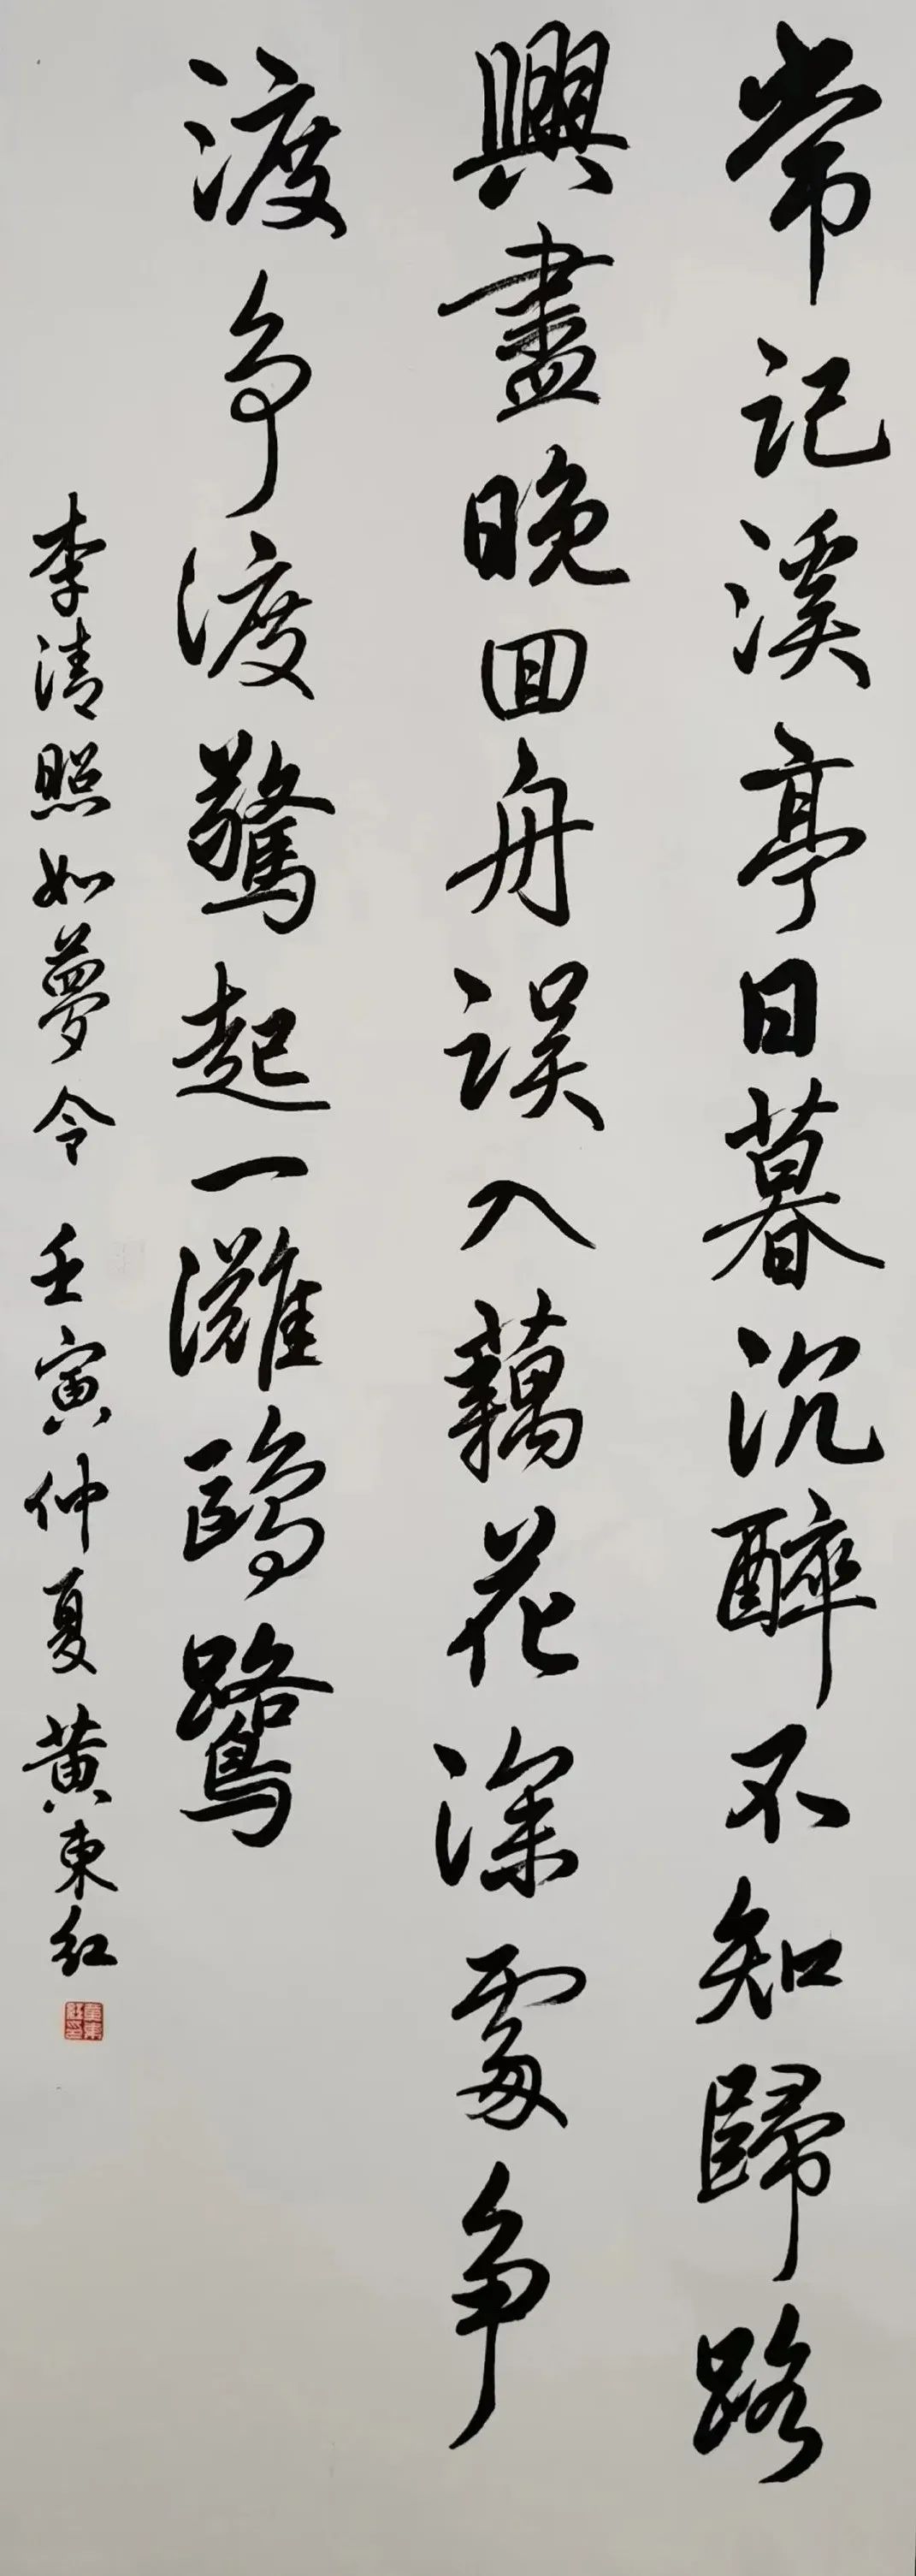 常记溪亭日暮沉醉不知歸路
興盡晚回舟误入藕花深處争
渡争渡驚起一灘鷗鷺
李清照如夢令 壬寅仲夏黄東红